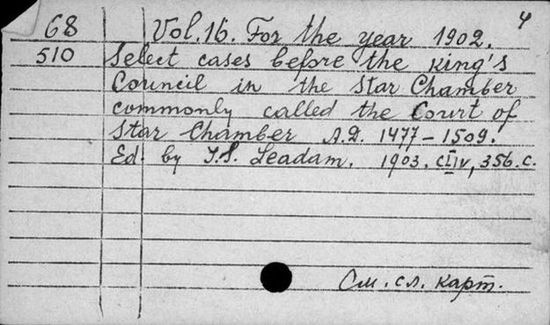 4
68 Vol. 16. For the year 1902.
510 Select cases before the king's
Council in the Star Chamber
commonly called the Court of
Star Chamber A.D. 1477–1509.
Ed. by I.S. Leadam. 1903. CLIV, 356. c.
См. сл. карт.